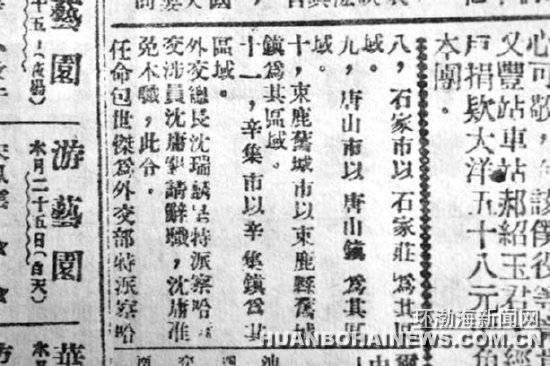 心可敬，該僕役等
又豐站車站郝紹玉君經
戶捐欵大洋五十八元角
本團。
八，石家市以石家莊爲其區
域。
九，唐山市以唐山鎮爲其區
域。
十，束鹿舊城市以束鹿縣舊城
鎮爲其區域。
十一，辛集市以辛集鎮爲其
區域。
外交總長沈瑞麟呈特派察哈
交涉員沈庸請辭職，沈庸准
免本職，此令。
任命包世傑爲外交部特派察哈
藝園
十五
游藝園
本月二十五日（白天）
華
环渤海新闻网
HUANBOHAINEWS.COM.CN